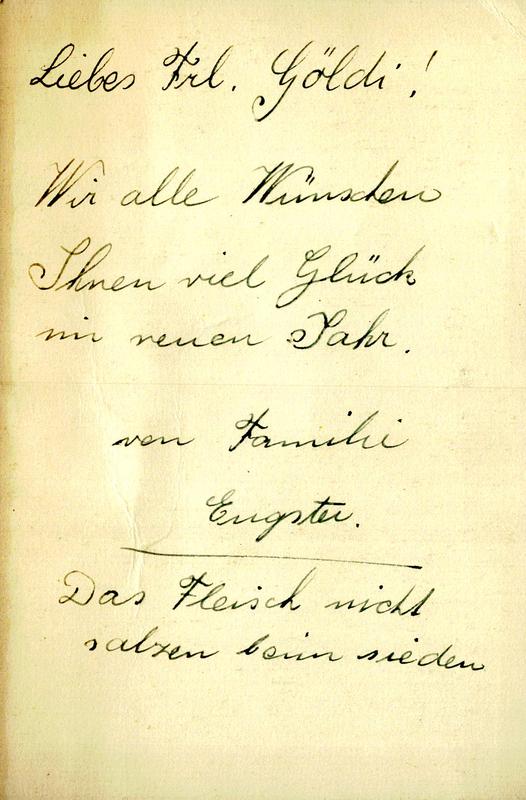 Liebes Frl. Göldi!
Wir alle Wünschen
Ihnen viel Glück
im neuen Jahr.
von Familie
Engster.
Das Fleisch nicht
salzen beim sieden